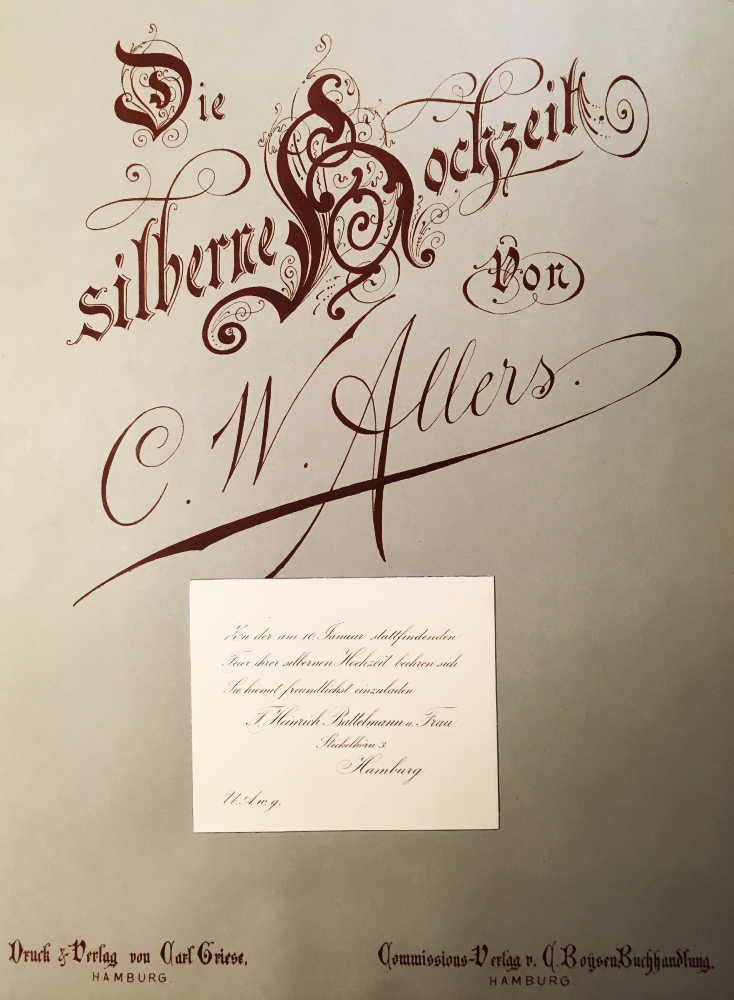 Die
silberne Hochzeit
von
C. W. Allers.
Zu der am 10. Januar stattfindenden
Feier ihrer silbernen Hochzeit beehren sich
Sie hiemit freundlichst einzuladen
F. Heinrich Battelmann u. Frau.
Steckelhörn 3.
Hamburg
U. A. w. g.
Druck & Verlag von Carl Griese.
HAMBURG.
Commissions-Verlag v. C. Boÿsen Buchhandlung.
HAMBURG.